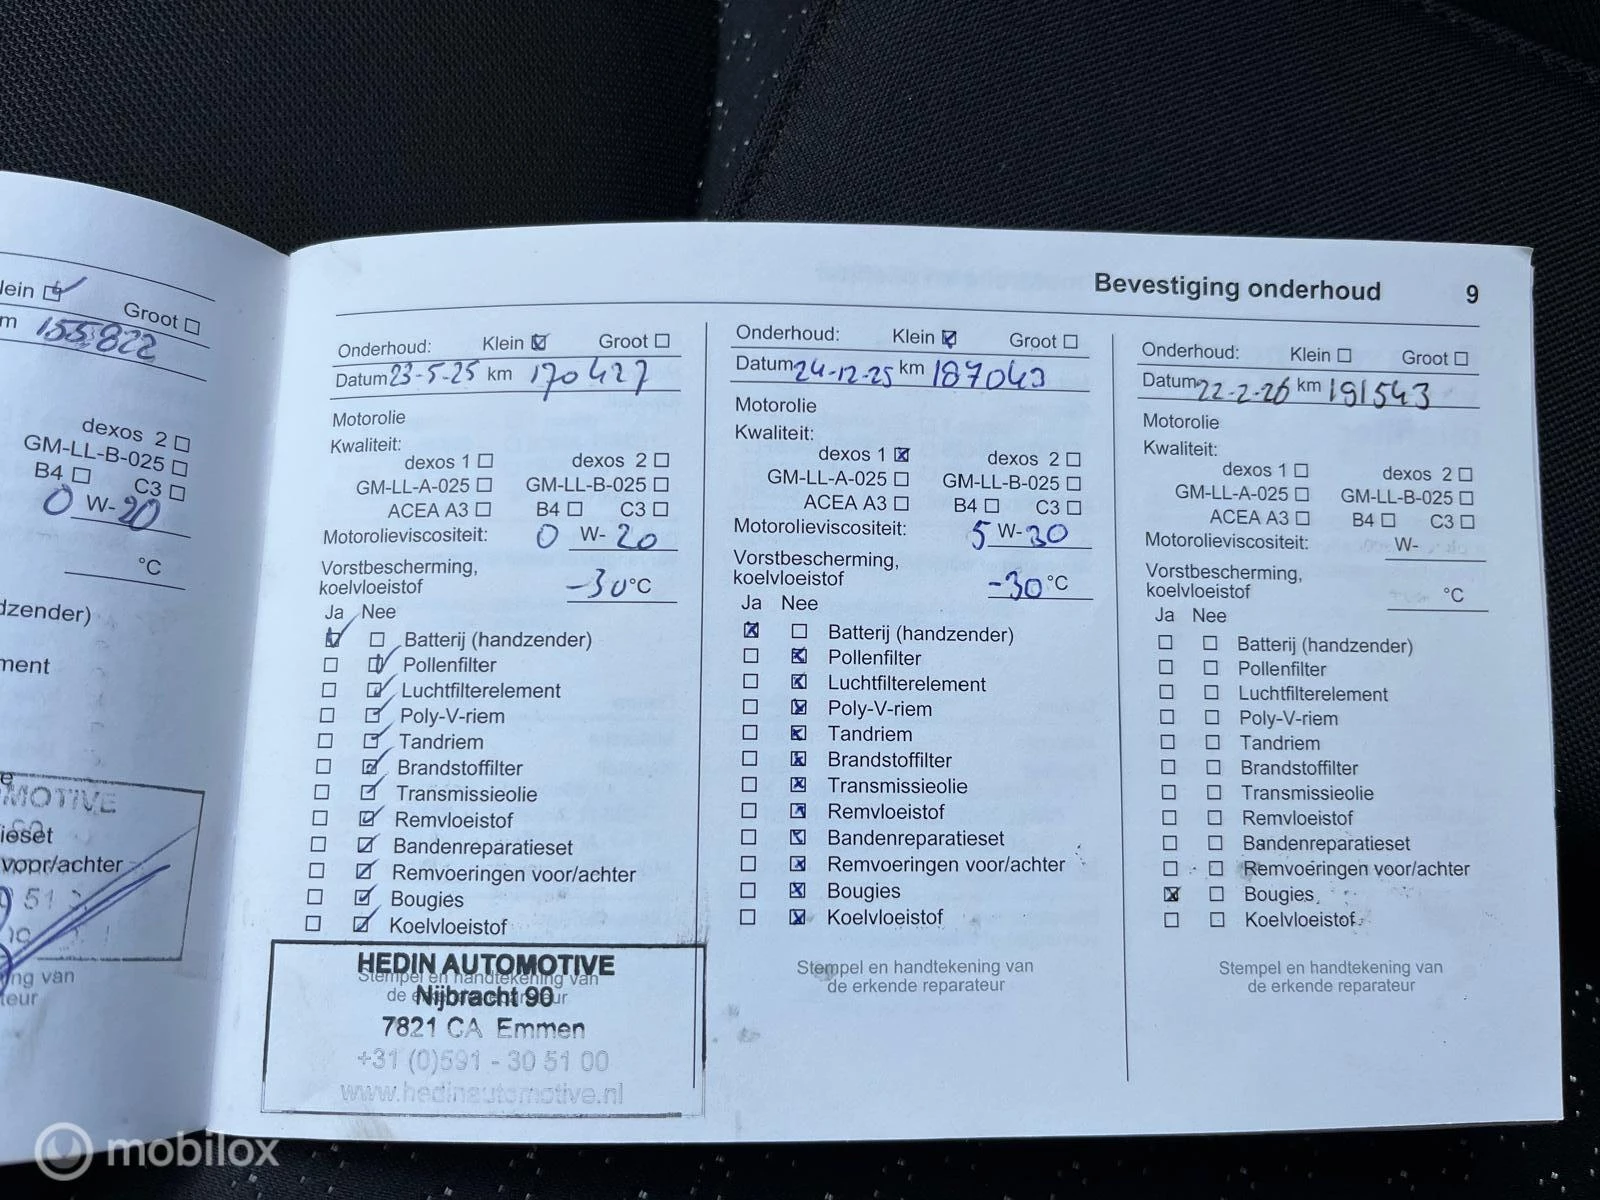 lein
Groot
m 155822
dexos 2
GM-LL-B-025
B4 C3
0 W-20
°C
dzender)
ment
MOTIVE
ieset
voor/achter
51
ng van
teur
Bevestiging onderhoud 9
Onderhoud: Klein Groot
Datum 23-5-25 km 170427
Motorolie
Kwaliteit:
dexos 1 dexos 2
GM-LL-A-025 GM-LL-B-025
ACEA A3 B4 C3
Motorolieviscositeit: 0 W-20
Vorstbescherming,
koelvloeistof -30°C
Ja Nee
Batterij (handzender)
Pollenfilter
Luchtfilterelement
Poly-V-riem
Tandriem
Brandstoffilter
Transmissieolie
Remvloeistof
Bandenreparatieset
Remvoeringen voor/achter
Bougies
Koelvloeistof
HEDIN AUTOMOTIVE
Stempel en handtekening van
Nijbracht 90
de erkende reparateur
7821 CA Emmen
+31 (0)591 - 30 51 00
www.hedinautomotive.nl
Onderhoud: Klein Groot
Datum 24-12-25 km 187043
Motorolie
Kwaliteit:
dexos 1 dexos 2
GM-LL-A-025 GM-LL-B-025
ACEA A3 B4 C3
Motorolieviscositeit: 5 W-30
Vorstbescherming,
koelvloeistof -30°C
Ja Nee
Batterij (handzender)
Pollenfilter
Luchtfilterelement
Poly-V-riem
Tandriem
Brandstoffilter
Transmissieolie
Remvloeistof
Bandenreparatieset
Remvoeringen voor/achter
Bougies
Koelvloeistof
Stempel en handtekening van
de erkende reparateur
Onderhoud: Klein Groot
Datum 22-2-26 km 191543
Motorolie
Kwaliteit:
dexos 1 dexos 2
GM-LL-A-025 GM-LL-B-025
ACEA A3 B4 C3
Motorolieviscositeit: W-
Vorstbescherming,
koelvloeistof °C
Ja Nee
Batterij (handzender)
Pollenfilter
Luchtfilterelement
Poly-V-riem
Tandriem
Brandstoffilter
Transmissieolie
Remvloeistof
Bandenreparatieset
Remvoeringen voor/achter
Bougies
Koelvloeistof
Stempel en handtekening van
de erkende reparateur
mobilox